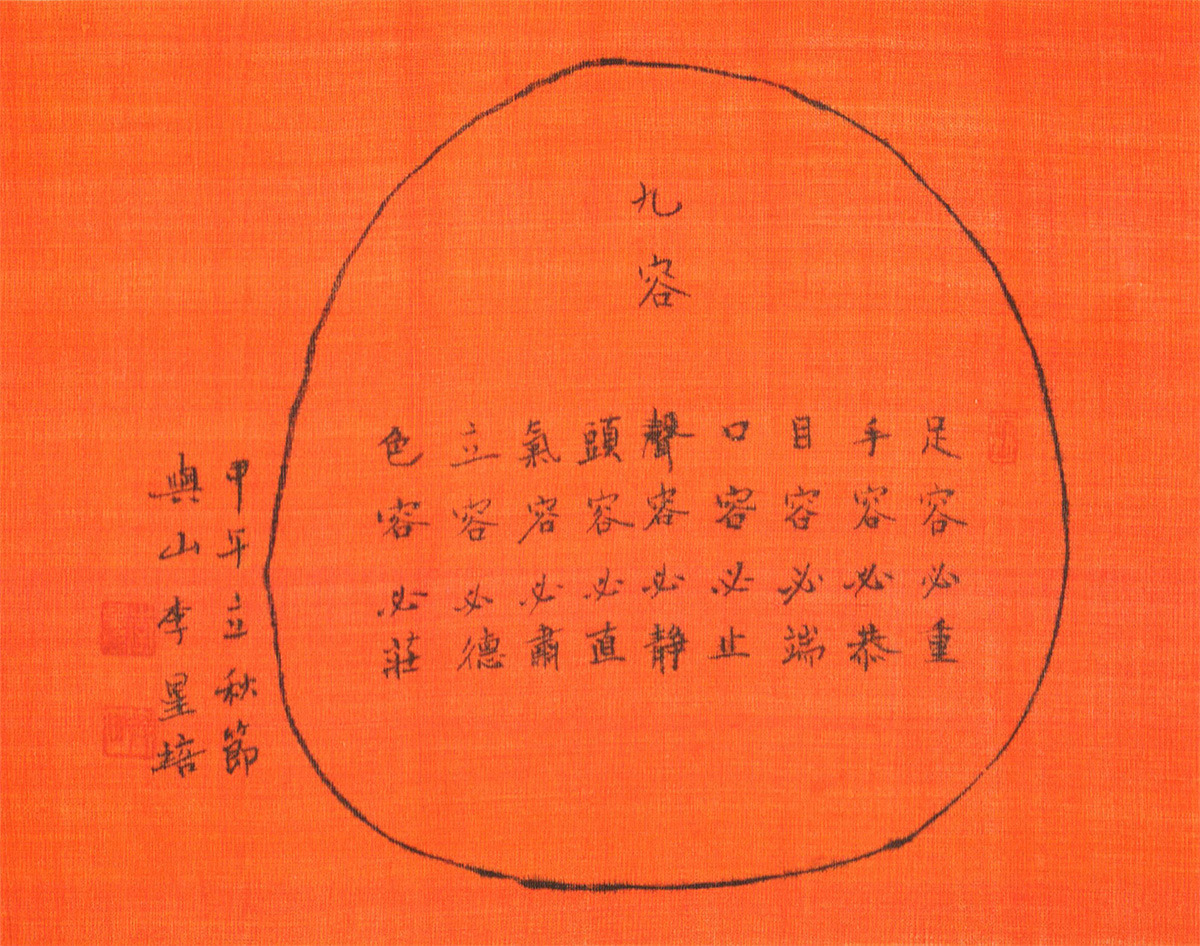 九容
足容必重
手容必恭
目容必端
口容必止
聲容必静
頭容必直
氣容必肅
立容必德
色容必莊
甲午立秋節
與山李星培